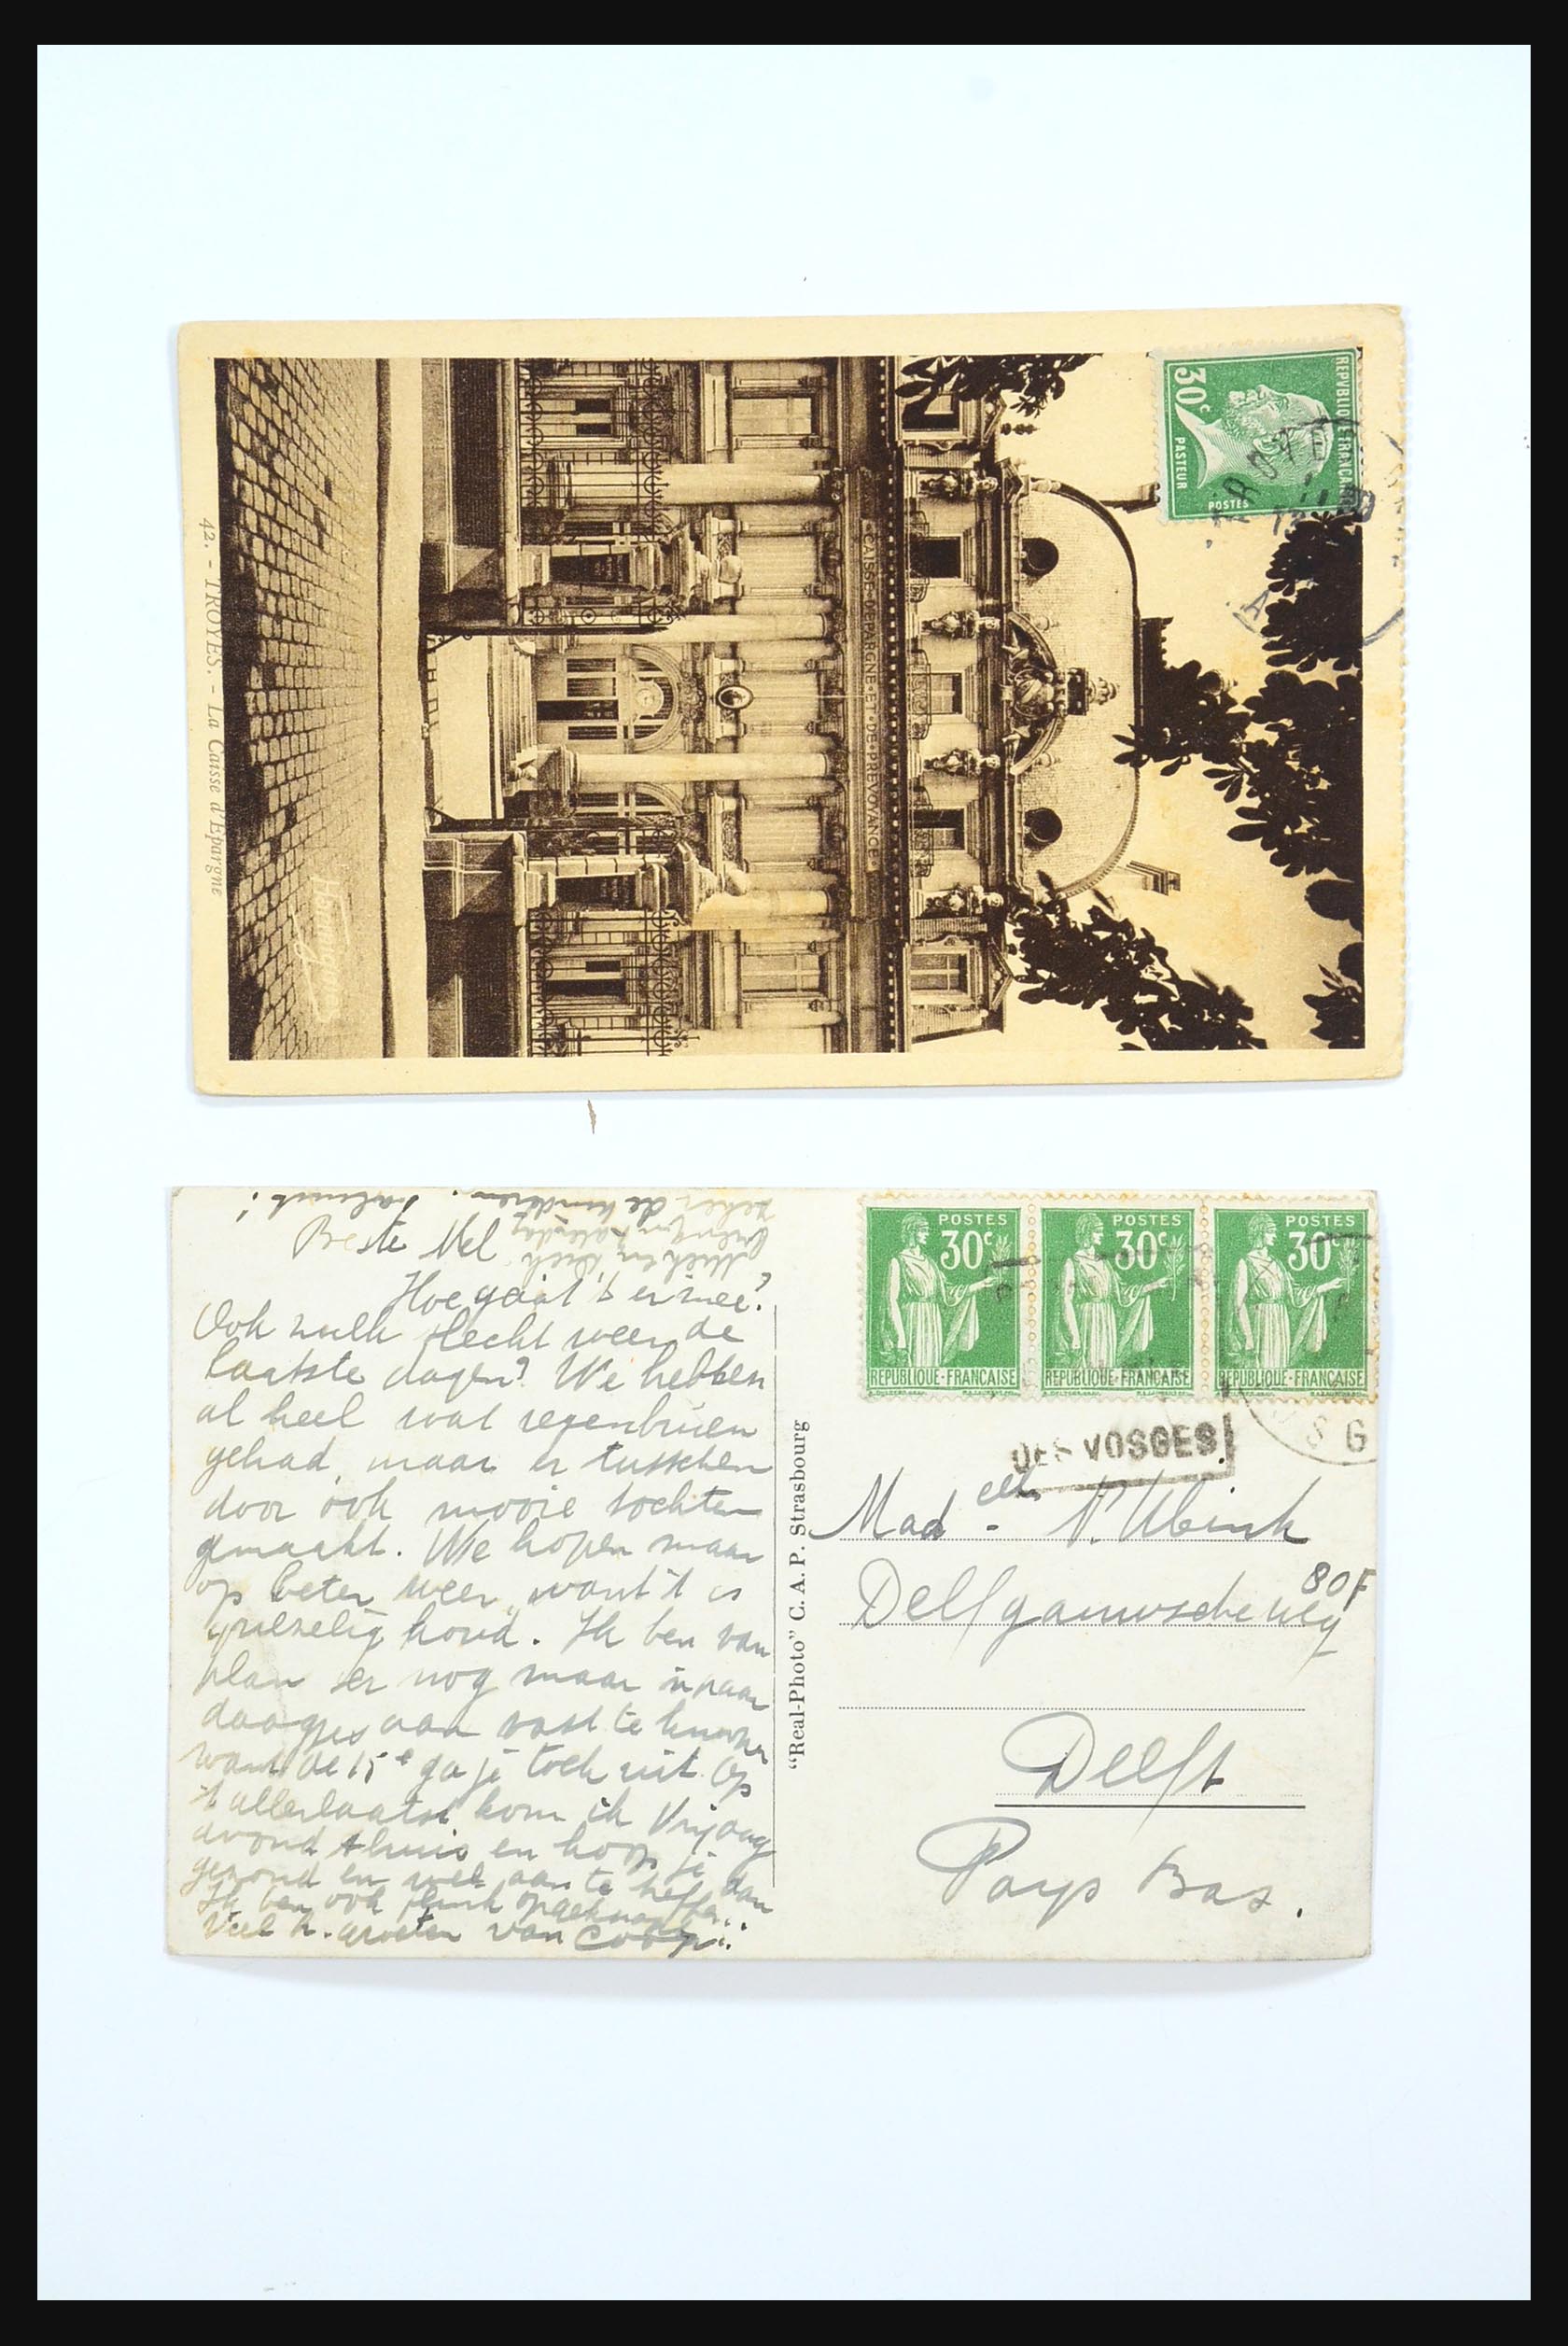 REPVBLIQVE FRANCAISE
30c
PASTEUR
POSTES
CAISSE D'EPARGNE ET DE PREVOYANCE
42. - TROYES. - La Caisse d'Epargne
zeker de kinderen.
Beste Nel
Hoe gaat 't er mee?
Ook zulk slecht weer de
laatste dagen? We hebben
al heel wat regenbuien
gehad, maar er tusschen
door ook mooie tochten
gemaakt. We hopen maar
op beter weer, want 't is
koud. Ik ben van
plan er nog maar 'n paar
daagjes aan vast te knoopen
want de 15e ga je toch uit. Op
't allerlaatst kom ik Vrijdag
avond thuis en hoop je dan
gezond en wel aan te treffen.
Ik ben ook flink opgeknapt
Veel h. groeten van Coop
"Real-Photo" C. A. P. Strasbourg
POSTES POSTES
30c 30c 30c
REPUBLIQUE-FRANÇAISE REPUBLIQUE-FRANÇAISE REPUBLIQUE-FRANÇAISE
DES VOSGES
S G
Madelle N. Ubink
Delfgauwsche weg 80F
Delft
Pays Bas.